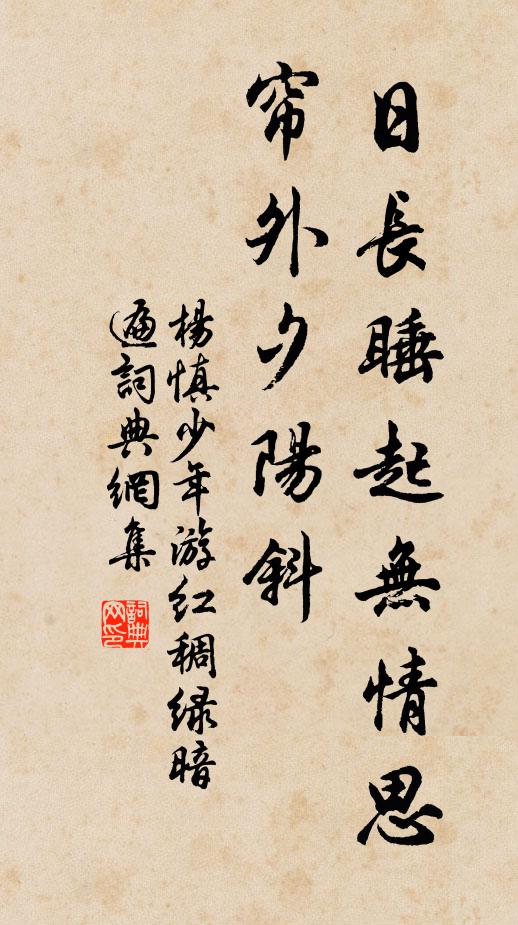 日長睡起無情思
帘外夕陽斜
楊慎少年游红稠绿暗
遍詞典網集
詞典网印